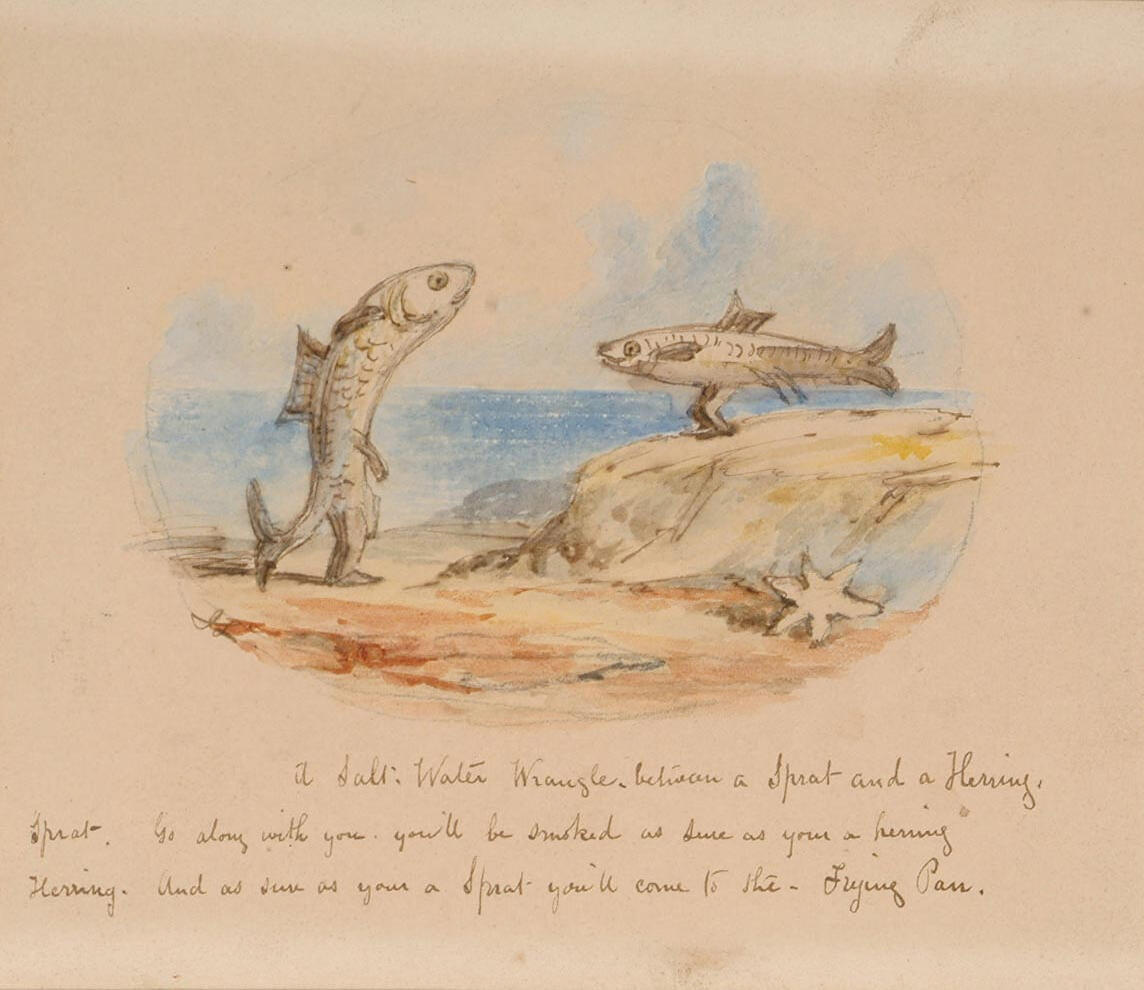 A Salt. Water Wrangle. between a Sprat and a Herring.
Sprat. Go along with you. you'll be smoked as sure as your a herring
Herring. And as sure as your a Sprat you'll come to the - Frying Pan.